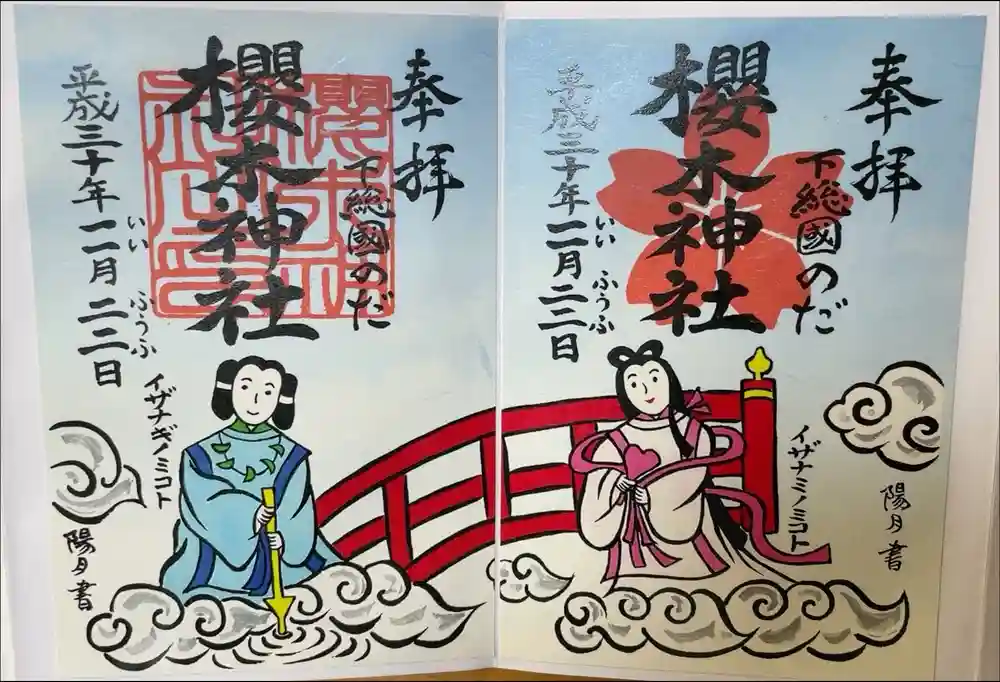 奉拝
下総國のだ
櫻木神社
平成三十年一一月二二日
いい ふうふ
イザナミノミコト
陽月書
奉拝
下総國のだ
櫻木神社
平成三十年一一月二二日
いい ふうふ
イザナギノミコト
陽月書